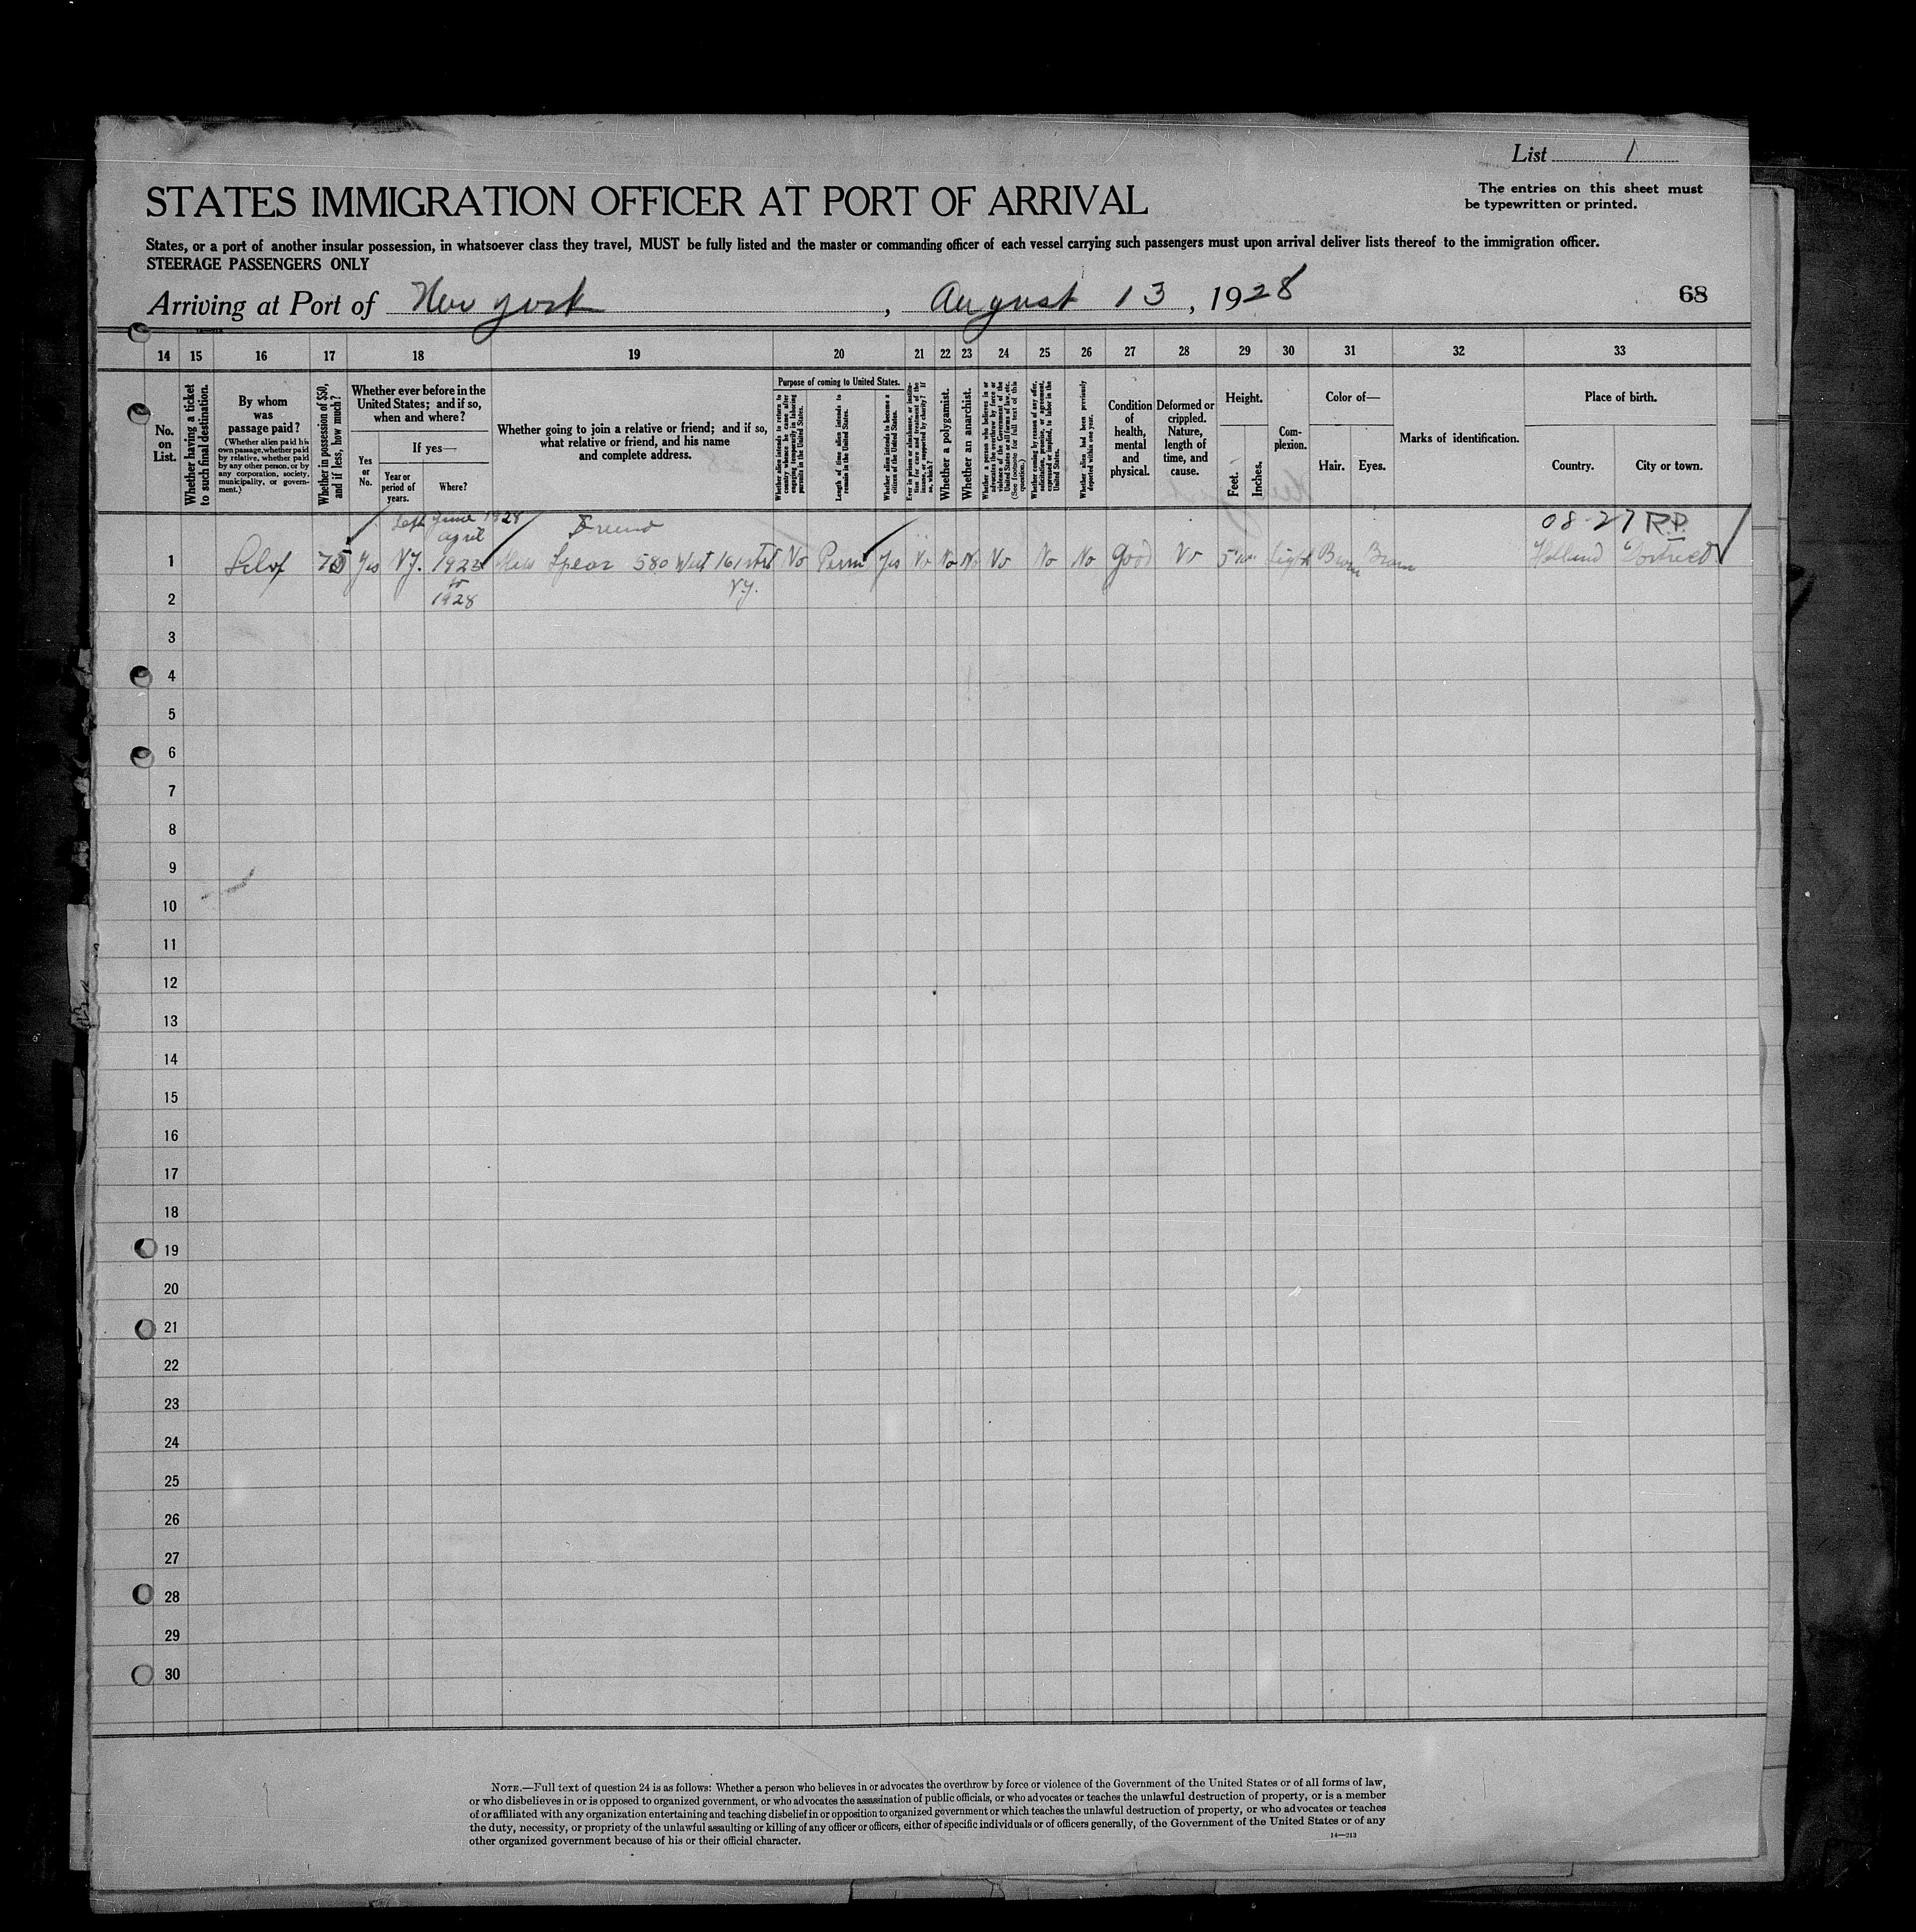 List 1
The entries on this sheet must
be typewritten or printed.
STATES IMMIGRATION OFFICER AT PORT OF ARRIVAL
States, or a port of another insular possession, in whatsoever class they travel, MUST be fully listed and the master or commanding officer of each vessel carrying such passengers must upon arrival deliver lists thereof to the immigration officer.
STEERAGE PASSENGERS ONLY
Arriving at Port of New york , August 13 , 1928
68
14 15 16 17 18 19 20 21 22 23 24 25 26 27 28 29 30 31 32 33
No. on List.
Whether having a ticket to such final destination.
By whom was passage paid?
(Whether alien paid his own passage, whether paid by relative, whether paid by any other person, or by any corporation, society, municipality, or government.)
Whether in possession of $50, and if less, how much?
Whether ever before in the United States; and if so, when and where?
Yes or No.
If yes—
Year or period of years.
Where?
Whether going to join a relative or friend; and if so, what relative or friend, and his name and complete address.
Purpose of coming to United States.
Whether alien intends to return to country whence he came after engaging temporarily in laboring pursuits in the United States.
Length of time alien intends to remain in the United States.
Whether alien intends to become a citizen of the United States.
Ever in prison or almshouse, or institution for care and treatment of the insane, or supported by charity? If so, which?
Whether a polygamist.
Whether an anarchist.
Whether a person who believes in or advocates the overthrow by force or violence of the Government of the United States or all forms of law, etc. (See footnote for full text of this question.)
Whether coming by reason of any offer, solicitation, promise, or agreement, expressed or implied, to labor in the United States.
Whether alien had been previously deported within one year.
Condition of health, mental and physical.
Deformed or crippled. Nature, length of time, and cause.
Height.
Feet. Inches.
Complexion.
Color of—
Hair. Eyes.
Marks of identification.
Place of birth.
Country. City or town.
Left June 1928 Friend 08-27 R.P.
april
1 Self 75 Yes N.Y. 1923 Spear 580 West 161 No Perm Yes No No No No No No Good No 5 Light Brown Brown Holland
to
1928 N.Y.
2
3
4
5
6
7
8
9
10
11
12
13
14
15
16
17
18
19
20
21
22
23
24
25
26
27
28
29
30
NOTE.—Full text of question 24 is as follows: Whether a person who believes in or advocates the overthrow by force or violence of the Government of the United States or of all forms of law,
or who disbelieves in or is opposed to organized government, or who advocates the assassination of public officials, or who advocates or teaches the unlawful destruction of property, or is a member
of or affiliated with any organization entertaining and teaching disbelief in or opposition to organized government or which teaches the unlawful destruction of property, or who advocates or teaches
the duty, necessity, or propriety of the unlawful assaulting or killing of any officer or officers, either of specific individuals or of officers generally, of the Government of the United States or of any
other organized government because of his or their official character.
14—213